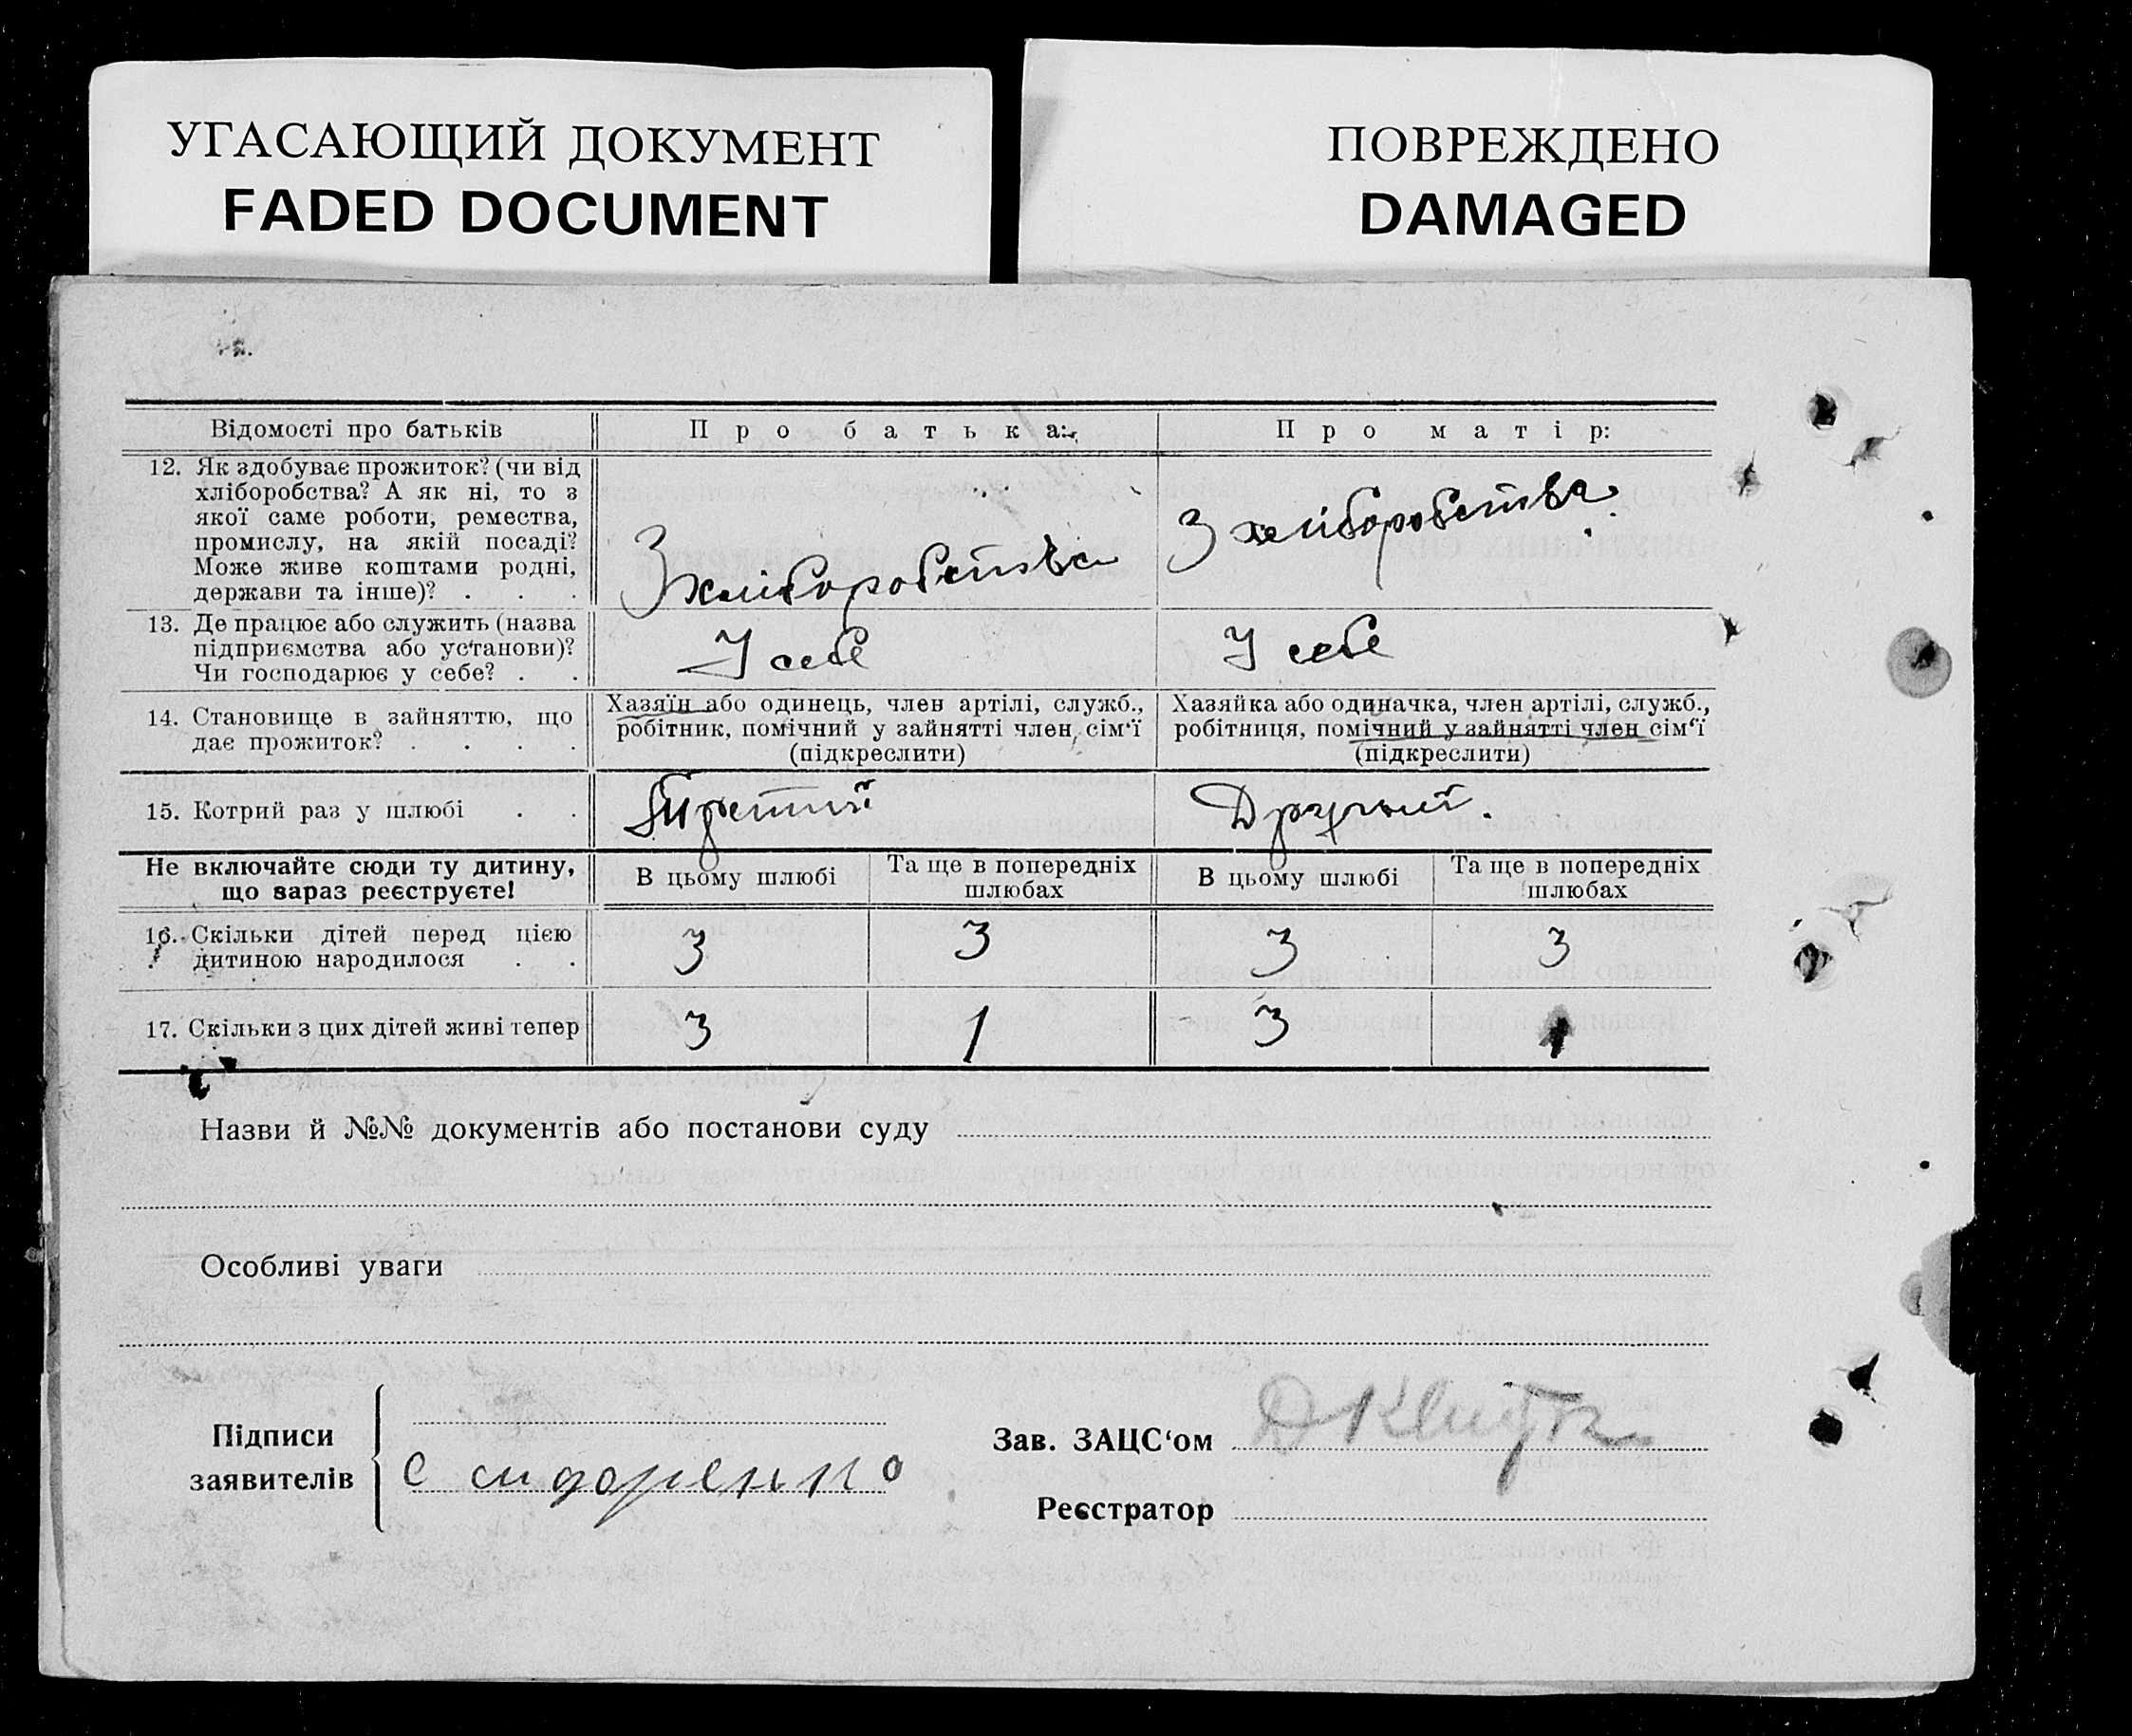 УГАСАЮЩИЙ ДОКУМЕНТ
FADED DOCUMENT
ПОВРЕЖДЕНО
DAMAGED
Відомості про батьків Про батька: Про матір:
12. Як здобуває прожиток? (чи від
хліборобства? А як ні, то з
якої саме роботи, ремества,
промислу, на якій посаді?
Може живе коштами родні,
держави та інше)? . . .
З хліборобства З хліборобства
13. Де працює або служить (назва
підприємства або установи)?
Чи господарює у себе? . .
У себе У себе
14. Становище в зайняттю, що
дає прожиток? . . . .
Хазяїн або одинець, член артілі, служб.,
робітник, помічний у зайнятті член сім‘ї
(підкреслити)
Хазяйка або одиначка, член артілі, служб.,
робітниця, помічний у зайнятті член сім‘ї
(підкреслити)
15. Котрий раз у шлюбі . . Третий Другий.
Не включайте сюди ту дитину,
що зараз реєструєте!
В цьому шлюбі
Та ще в попередніх
шлюбах
В цьому шлюбі
Та ще в попередніх
шлюбах
16. Скільки дітей перед цією
дитиною народилося . .
3 3 3 3
17. Скільки з цих дітей живі тепер 3 1 3 1
Назви й №№ документів або постанови суду
Особливі уваги
Підписи
заявителів
С сидоренко
Зав. ЗАЦС‘ом
Реєстратор